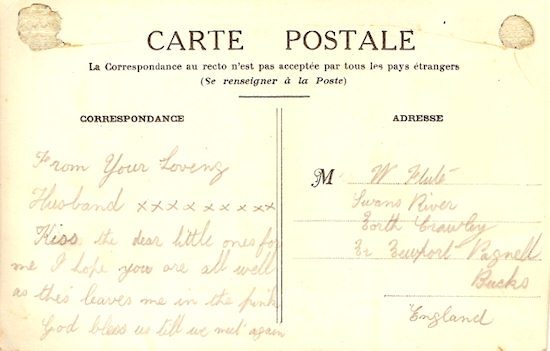 CARTE POSTALE
La Correspondance au recto n'est pas acceptée par tous les pays étrangers
(Se renseigner à la Poste)
CORRESPONDANCE
From Your Loving
Husband xxxxxxxxx
Kiss the dear little ones for
me I hope you are all well
as this leaves me in the pink
God bless us till we meet again
ADRESSE
M W
Swans River
Crawley
Newport Pagnell
Bucks
England